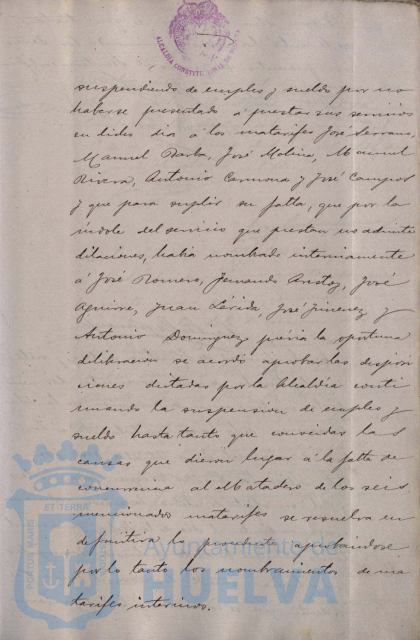 ALCALDIA CONSTITUCIONAL DE HUELVA
suspendiendo de empleo y sueldo por no
haberse presentado á prestar sus servicios
en dicho dia á los matarifes José Serrano,
Manuel Barba, José Molina, Manuel
Rivera, Antonio Carmona y José Campos
y que para suplir su falta, que por la
indole del servicio que prestan no admite
dilaciones, habia nombrado interinamente
á José Romero, Fernando José
Aguirre, Juan Lérida, José Jimenez y
Antonio Dominguez, prévia la oportuna
deliberacion se acordó aprobar las disposi
ciones dictadas por la Alcaldia conti
nuando la suspension de empleo y
sueldo hasta tanto que conocidas las
causas que dieron lugar á la falta de
concurrencia al Matadero de los seis
mencionados matarifes se resuelva en
definitiva lo procedente aprobandose
por lo tanto los nombramientos de ma
tarifes interinos.
PORTUS MARIS
ET TERRÆ
Ayuntamiento de
HUELVA